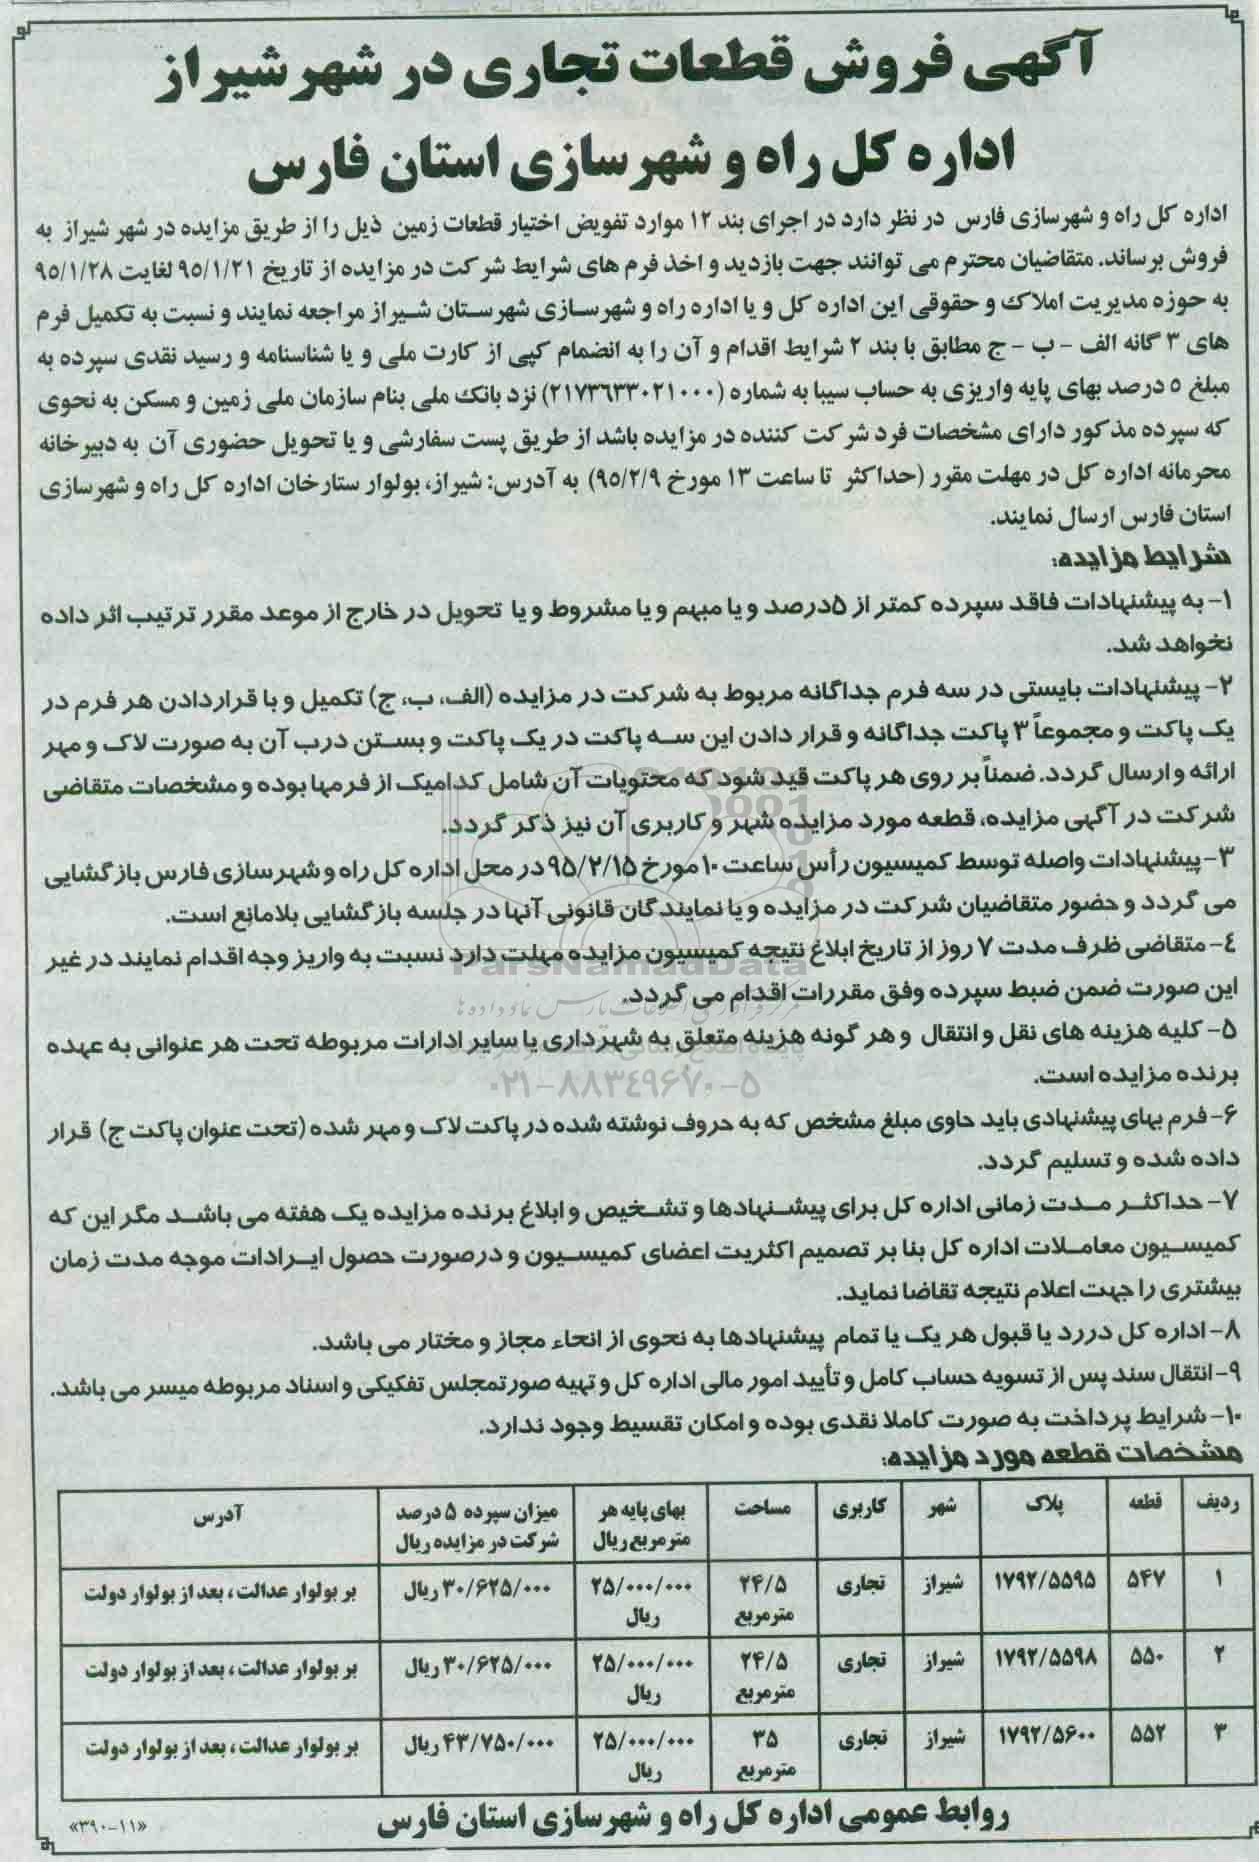 آگهی فروش قطعات تجاری در شهر شیراز
اداره کل راه و شهرسازی استان فارس
اداره کل راه و شهرسازی فارس در نظر دارد در اجرای بند ۱۲ موارد تفویض اختیار قطعات زمین ذیل را از طریق مزایده در شهر شیراز به
فروش برساند. متقاضیان محترم می توانند جهت بازدید و اخذ فرم های شرایط شرکت در مزایده از تاریخ ۹۵/۱/۲۱ لغایت ۹۵/۱/۲۸
به حوزه مدیریت املاک و حقوقی این اداره کل و یا اداره راه و شهرسازی شهرستان شیراز مراجعه نمایند و نسبت به تکمیل فرم
های ۳ گانه الف – ب – ج مطابق با بند ۲ شرایط اقدام و آن را به انضمام کپی از کارت ملی و یا شناسنامه و رسید نقدی سپرده به
مبلغ ۵ درصد بهای پایه واریزی به حساب سیبا به شماره (۲۱۷۳۶۳۳۰۲۱۰۰۰) نزد بانک ملی بنام سازمان ملی زمین و مسکن به نحوی
که سپرده مذکور دارای مشخصات فرد شرکت کننده در مزایده باشد از طریق پست سفارشی و یا تحویل حضوری آن به دبیرخانه
محرمانه اداره کل در مهلت مقرر (حداکثر تا ساعت ۱۳ مورخ ۹۵/۲/۹) به آدرس: شیراز، بولوار ستارخان اداره کل راه و شهرسازی
استان فارس ارسال نمایند.
شرایط مزایده:
۱- به پیشنهادات فاقد سپرده کمتر از ۵درصد و یا مبهم و یا مشروط و یا تحویل در خارج از موعد مقرر ترتیب اثر داده
نخواهد شد.
۲- پیشنهادات بایستی در سه فرم جداگانه مربوط به شرکت در مزایده (الف، ب، ج) تکمیل و با قراردادن هر فرم در
یک پاکت و مجموعاً ۳ پاکت جداگانه و قرار دادن این سه پاکت در یک پاکت و بستن درب آن به صورت لاک و مهر
ارائه و ارسال گردد. ضمناً بر روی هر پاکت قید شود که محتویات آن شامل کدامیک از فرمها بوده و مشخصات متقاضی
شرکت در آگهی مزایده، قطعه مورد مزایده شهر و کاربری آن نیز ذکر گردد.
۳- پیشنهادات واصله توسط کمیسیون رأس ساعت ۱۰ مورخ ۹۵/۲/۱۵ در محل اداره کل راه و شهرسازی فارس بازگشایی
می گردد و حضور متقاضیان شرکت در مزایده و یا نمایندگان قانونی آنها در جلسه بازگشایی بلامانع است.
۴- متقاضی ظرف مدت ۷ روز از تاریخ ابلاغ نتیجه کمیسیون مزایده مهلت دارد نسبت به واریز وجه اقدام نمایند در غیر
این صورت ضمن ضبط سپرده وفق مقررات اقدام می گردد.
۵- کلیه هزینه های نقل و انتقال و هر گونه هزینه متعلق به شهرداری یا سایر ادارات مربوطه تحت هر عنوانی به عهده
برنده مزایده است.
۶- فرم بهای پیشنهادی باید حاوی مبلغ مشخص که به حروف نوشته شده در پاکت لاک و مهر شده (تحت عنوان پاکت ج) قرار
داده شده و تسلیم گردد.
۷- حداکثر مدت زمانی اداره کل برای پیشنهادها و تشخیص و ابلاغ برنده مزایده یک هفته می باشد مگر این که
کمیسیون معاملات اداره کل بنا بر تصمیم اکثریت اعضای کمیسیون و درصورت حصول ایرادات موجه مدت زمان
بیشتری را جهت اعلام نتیجه تقاضا نماید.
۸- اداره کل دررد یا قبول هر یک یا تمام پیشنهادها به نحوی از انحاء مجاز و مختار می باشد.
۹- انتقال سند پس از تسویه حساب کامل و تأیید امور مالی اداره کل و تهیه صورتمجلس تفکیکی و اسناد مربوطه میسر می باشد.
۱۰- شرایط پرداخت به صورت کاملا نقدی بوده و امکان تقسیط وجود ندارد.
مشخصات قطعه مورد مزایده:
ردیف قطعه پلاک شهر کاربری مساحت بهای پایه هر مترمربع ریال میزان سپرده ۵ درصد شرکت در مزایده ریال آدرس
۱ ۵۴۷ ۱۷۹۲/۵۵۹۵ شیراز تجاری ۲۴/۵ مترمربع ۲۵/۰۰۰/۰۰۰ ریال ۳۰/۶۲۵/۰۰۰ ریال بر بولوار عدالت، بعد از بولوار دولت
۲ ۵۵۰ ۱۷۹۲/۵۵۹۸ شیراز تجاری ۲۴/۵ مترمربع ۲۵/۰۰۰/۰۰۰ ریال ۳۰/۶۲۵/۰۰۰ ریال بر بولوار عدالت، بعد از بولوار دولت
۳ ۵۵۲ ۱۷۹۲/۵۶۰۰ شیراز تجاری ۳۵ مترمربع ۲۵/۰۰۰/۰۰۰ ریال ۴۳/۷۵۰/۰۰۰ ریال بر بولوار عدالت، بعد از بولوار دولت
روابط عمومی اداره کل راه و شهرسازی استان فارس
«۳۹۰-۱۱»
ParsNamadData
۰۲۱-۸۸۳۴۹۶۷۰-۵